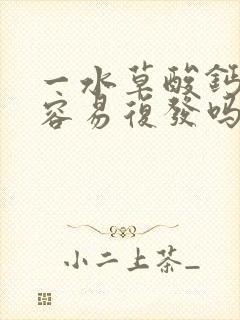 一水草酸鈣
容易復發吗
小二上茶_